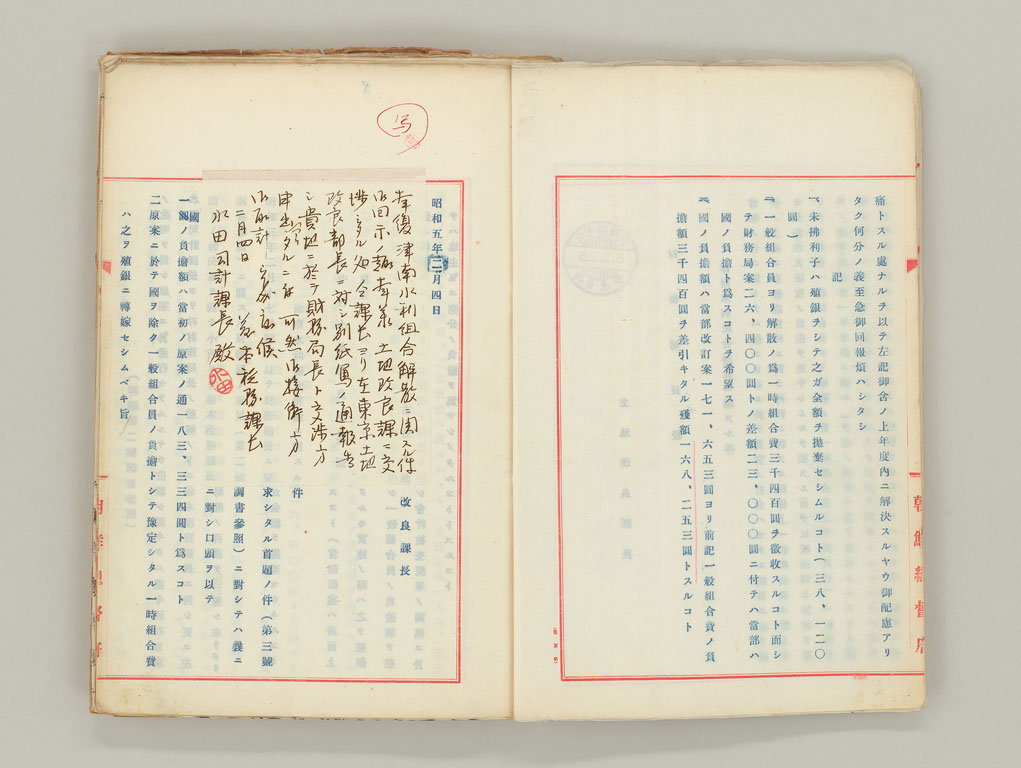 痛トスル處ナルヲ以テ左記御含ノ上年度內ニ解決スルヤウ御配慮アリ
タク何分ノ義至急御回報煩ハシタシ
記
一、未拂利子ハ殖銀ヲシテ之ガ全額ヲ抛棄セシムルコト(三八、一二〇
圓)
二、一般組合員ヨリ解散ノ爲一時組合費三千四百圓ヲ徵收スルコト而シ
テ財務局案二六、四〇〇圓トノ差額二三、〇〇〇圓ニ付テハ當部ハ
國ノ負擔ト爲スコトヲ希望ス
三、國ノ負擔額ハ當部改訂案一七一、六五三圓ヨリ前記一般組合費ノ負
擔額三千四百圓ヲ差引キタル殘額一六八、二五三圓トスルコト
朝鮮總督府
写
昭和五年三月四日
改良課長
幸復 津南水利組合解散ニ関スル件
御回示ノ趣 土地改良課ニ交
涉シタル処 仝課長ヨリ在東京土地
改良部長ニ対シ別紙寫ノ通報告
シ貴地ニ於テ財務局長ト交渉方
申出タルニ付 可然御接衝方
三月四日
水田司計課長殿
水田
件
求シタル首題ノ件(第三號
調書參照)ニ對シテハ義ニ
ニ對シ口頭ヲ以テ
一國ノ負擔額ハ當初ノ原案ノ通一八三、三三四圓ト爲スコト
二原案ニ於テ國ヲ除ク一般組合員ノ負擔トシテ豫定シタル一時組合費
ハ之ヲ殖銀ニ轉嫁セシムベキ旨